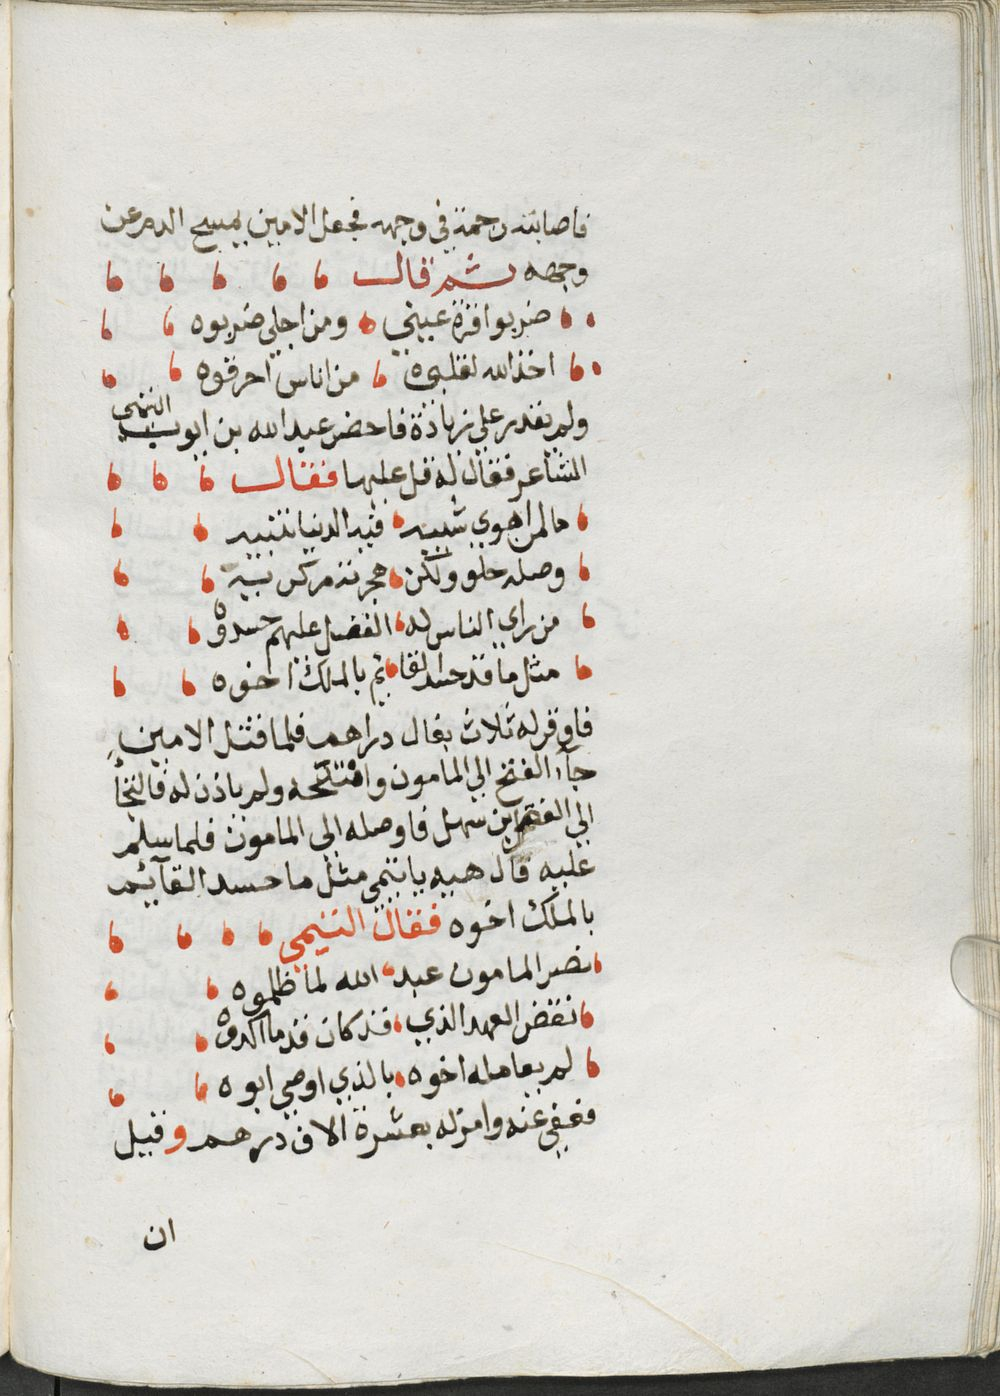 فاصابته رحمة في وجهه فجعل الامين يمسح الدم عن
وجهه ثم قال
ضربوا قرة عيني ومن اجلي ضربوه
اخذ الله لقلبي من اناس احرقوه
ولم يقدر علي زيادة فاحضر عبد الله بن ايوب التيمي
الشاعر فقال له قل عليها فقال
ما لمن اهوي شبيه فبه الدنيا تتيه
وصله حلو ولكن هجره مر كريه
من راي الناس له الفضل عليهم حسدوه
مثل ما قد حسد القا يم بالملك اخوه
فاوقر له ثلاث بغال دراهم فلما قتل الامين
جآء الفتح الي المامون وامتدحه ولم ياذن له فالتجأ
الي الفضل ابن سهل فاوصله الي المامون فلما سلم
عليه قال هيه يا تيمي مثل ما حسد القآئم
بالملك اخوه فقال التيمي
نصر المامون عبد الله لما ظلموه
نقض العهد الذي قد كان قدما اكدوه
لم يعامله اخوه بالذي اوصي ابوه
فعفي عنه وامر له بعشرة الاف درهم وقيل
ان